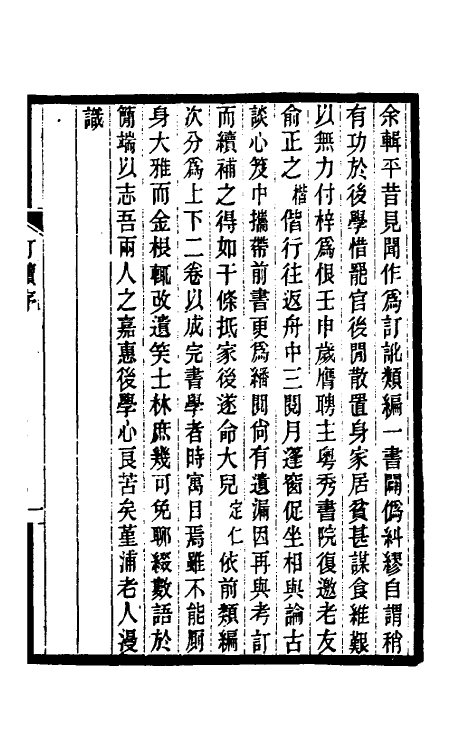 余輯平昔見聞作爲訂訛類編一書闢僞糾繆自謂稍
有功於後學惜罷官後閒散置身家居貧甚謀食維艱
以無力付梓爲恨壬申歲膺聘主粤秀書院復邀老友
俞正之楷偕行往返舟中三閱月蓬窗促坐相與論古
談心笈中攜帶前書更爲繙閱尙有遺漏因再與考訂
而續補之得如干條抵家後遂命大兒定仁依前類編
次分爲上下二卷以成完書學者時寓目焉雖不能厠
身大雅而金根輒改遺笑士林庶幾可免聊綴數語於
簡端以志吾兩人之嘉惠後學心良苦矣堇浦老人漫
識
訂續序